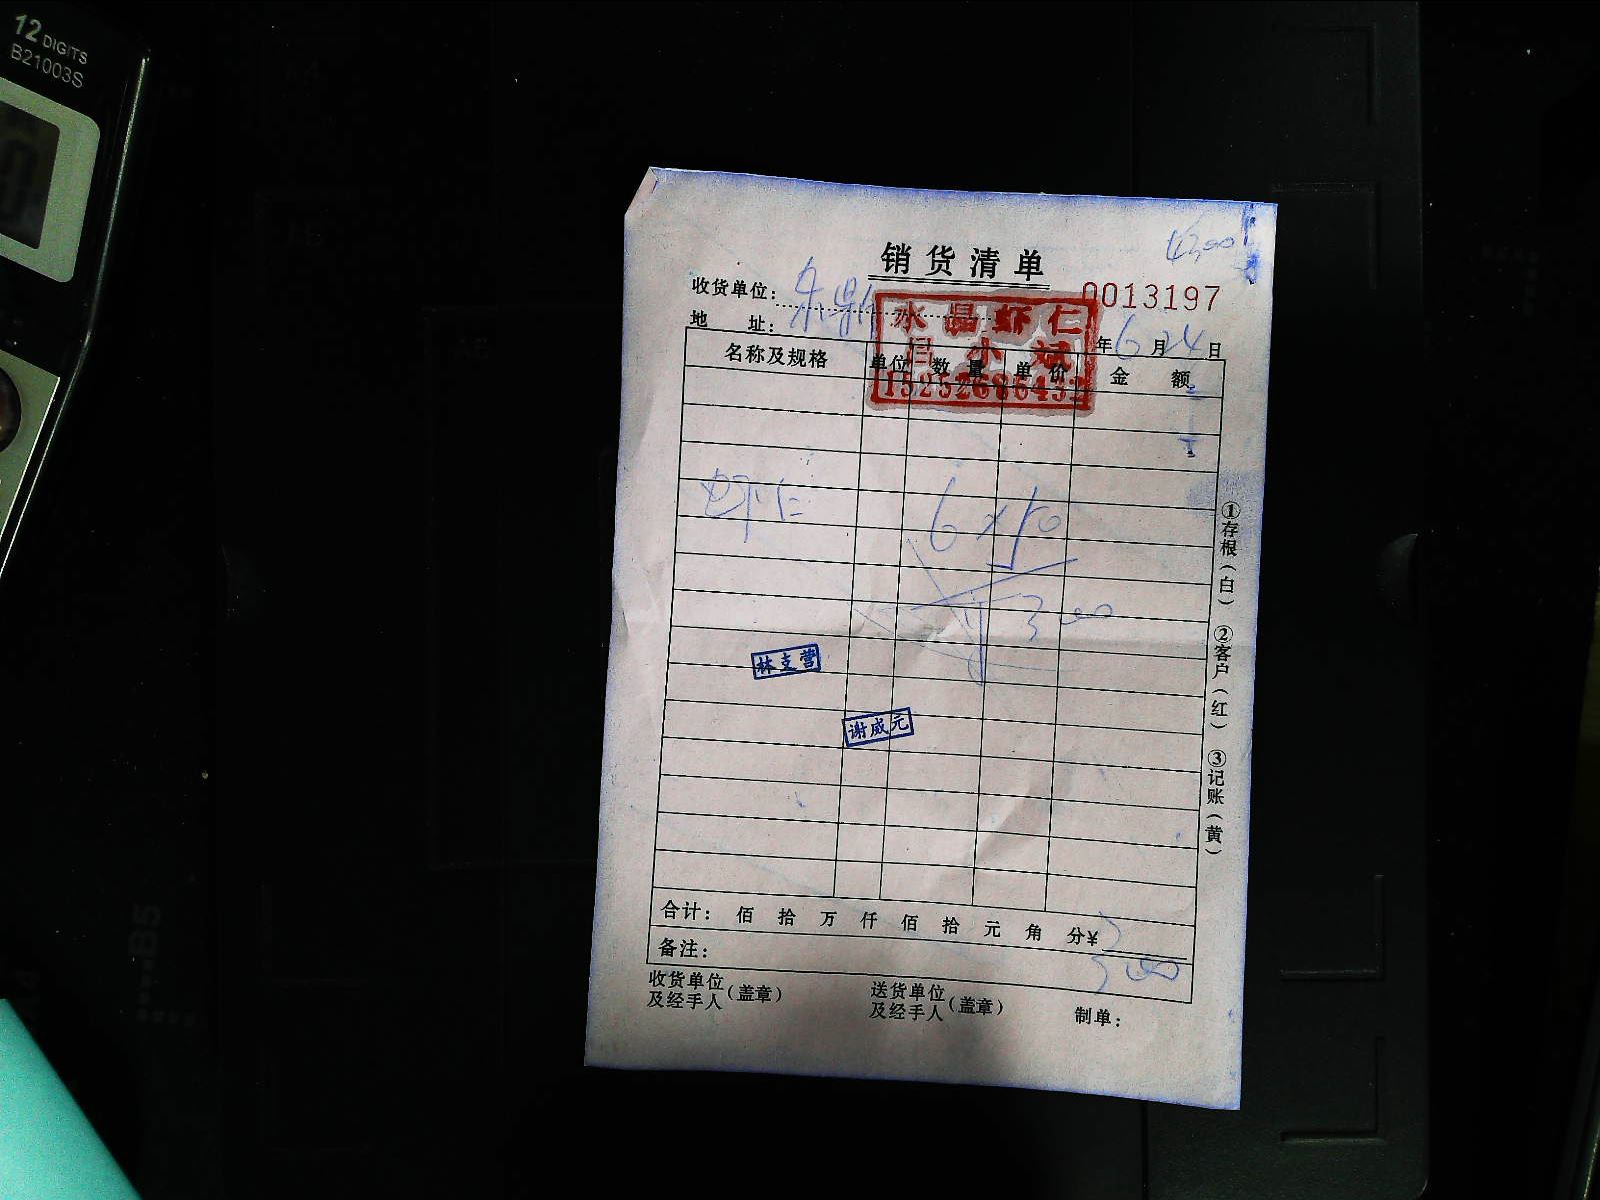 12 DIGITS
B21003S
销货清单
收货单位:
0013197
水晶虾仁
地 址:
年6月24日
吕小斌
名称及规格 单位 数量 单价 金额
虾仁 6×50
300
林支营
谢威元
①存根(白) ②客户(红) ③记账(黄)
合计: 佰 拾 万 仟 佰 拾 元 角 分¥
备注: 300
收货单位及经手人(盖章) 送货单位及经手人(盖章) 制单:
B5